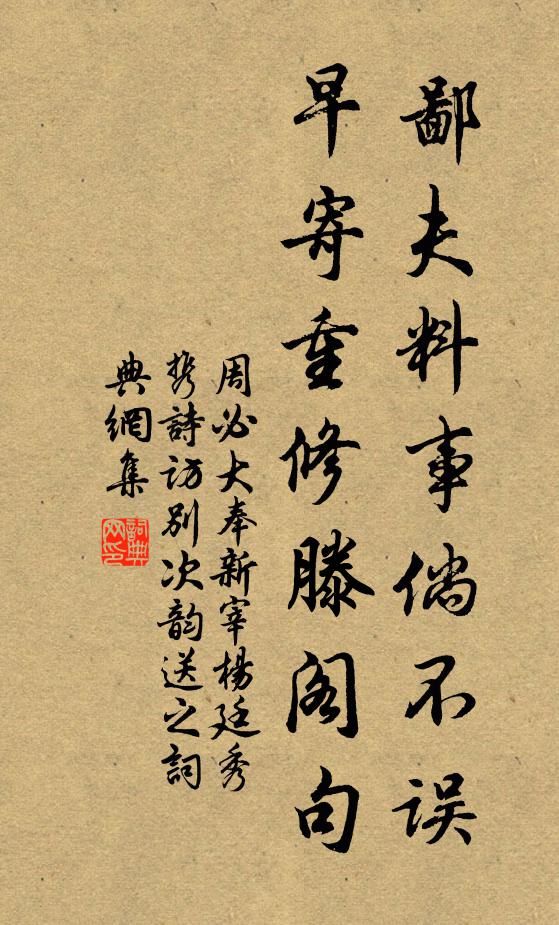 鄙夫料事倘不误
早寄重修滕阁句
周必大奉新宰楊廷秀
携詩访别次韵送之詞
典網集
詞典
网印